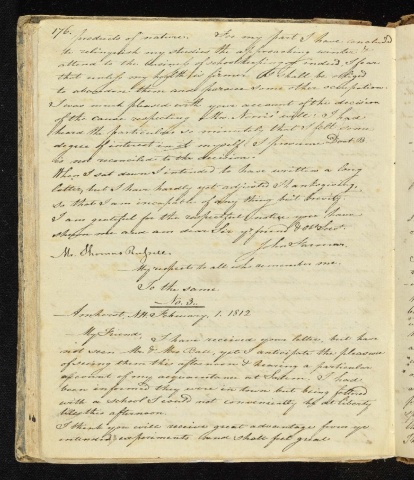 176.
products of nature. For my part I have concluded
to relinquish my studies the approaching winter &
attend to the business of schoolkeeping & indeed I fear
that unless my health is firmer I shall be obliged
to abandon them and pursue some other occupation.
I was much pleased with your account of the decision
of the cause respecting Mr. will. I had
heard the particulars so minutely that I felt some
degree of interest in it myself. I presume Doct. B
is not reconciled to the decision.
When I sat down I intended to have written a long
letter, but I have hardly yet adjusted Thanksgiving,
so that I am incapable of any thing but brevity.
I am grateful for the respectful notice you have
shown me and am dear Sir yr friend & obt Servt.
John
Mr. Thomas
My respects to all who remember me.
To the same
No. 3.
Amherst, NH. February, 1. 1812
My Friend,
I have received your letter, but have
not seen Mr. & Mrs. yet I anticipate the pleasure
of seeing them this afternoon & hearing a particular
account of my acquaintance at Salem. I had
been informed they were in town but being fettered
with a school I could not conveniently be at liberty
till this afternoon.
I think you will receive great advantage from yr
intended experiments and shall feel great